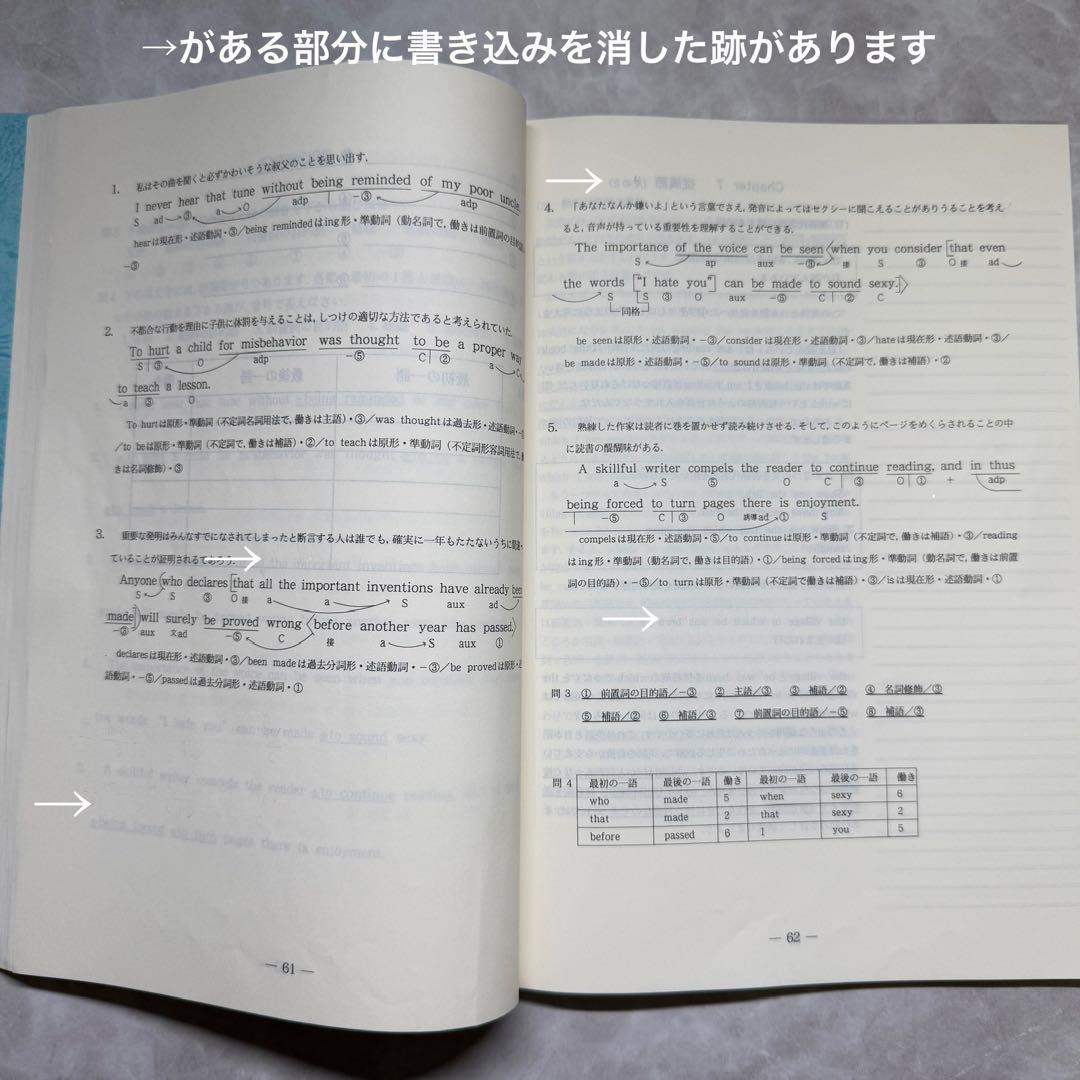 →がある部分に書き込みを消した跡があります
1. 私はその曲を聞くと必ずかわいそうな叔父のことを思い出す.
I never hear that tune without being reminded of my poor uncle.
S ad ③ a O adp -③ adp
hearは現在形・述語動詞・③/being remindedはing形・準動詞(動名詞で, 働きは前置詞の目的
-③
2. 不都合な行動を理由に子供に体罰を与えることは, しつけの適切な方法であると考えられていた.
To hurt a child for misbehavior was thought to be a proper way
S ③ O adp -⑤ C ② a C
to teach a lesson.
a ③ O
To hurtは原形・準動詞(不定詞名詞用法で, 働きは主語)・③/was thoughtは過去形・述語動詞・
/to beは原形・準動詞(不定詞で, 働きは補語)・②/to teachは原形・準動詞(不定詞形容詞用法で,
きは名詞修飾)・③
3. 重要な発明はみんなすでになされてしまったと断言する人は誰でも, 確実に一年もたたないうちに
ていることが証明されるであろう.
Anyone who declares that all the important inventions have already been
S S ③ O 接 a a S aux ad
made will surely be proved wrong before another year has passed.
-③ aux 文ad -⑤ C 接 a S aux ①
declaresは現在形・述語動詞・③/been madeは過去分詞形・述語動詞・-③/be provedは原形・
語動詞・-⑤/passedは過去分詞形・述語動詞・①
— 61 —
4. 「あなたなんか嫌いよ」という言葉でさえ, 発音によってはセクシーに聞こえることがありうることを考え
ると, 音声が持っている重要性を理解することができる.
The importance of the voice can be seen 〈when you consider [that even
S ap aux -③ 接 S ③ O 接 ad
the words ["I hate you"] can be made to sound sexy.]〉
S S ③ O aux -⑤ C ② C
同格
be seenは原形・述語動詞・-③/considerは現在形・述語動詞・③/hateは現在形・述語動詞・③/
be madeは原形・述語動詞・-⑤/to soundは原形・準動詞(不定詞で, 働きは補語)・②
5. 熟練した作家は読者に巻を置かせず読み続けさせる. そして, このようにページをめくらされることの中
に読書の醍醐味がある.
A skillful writer compels the reader to continue reading, and in thus
a S ⑤ O C ③ O ① + adp
being forced to turn pages there is enjoyment.
-⑤ C ③ O 誘導ad ① S
compelsは現在形・述語動詞・⑤/to continueは原形・準動詞(不定詞で, 働きは補語)・③/reading
はing形・準動詞(動名詞で, 働きは目的語)・①/being forcedはing形・準動詞(動名詞で, 働きは前置
詞の目的語)・-⑤/to turnは原形・準動詞(不定詞で働きは補語)・③/isは現在形・述語動詞・①
問3 ① 前置詞の目的語/-③ ② 主語/③ ③ 補語/② ④ 名詞修飾/③
⑤ 補語/② ⑥ 補語/③ ⑦ 前置詞の目的語/-⑤ ⑧ 補語/③
問4 最初の一語 最後の一語 働き 最初の一語 最後の一語 働き
who made 5 when sexy 6
that made 2 that sexy 2
before passed 6 I you 5
— 62 —